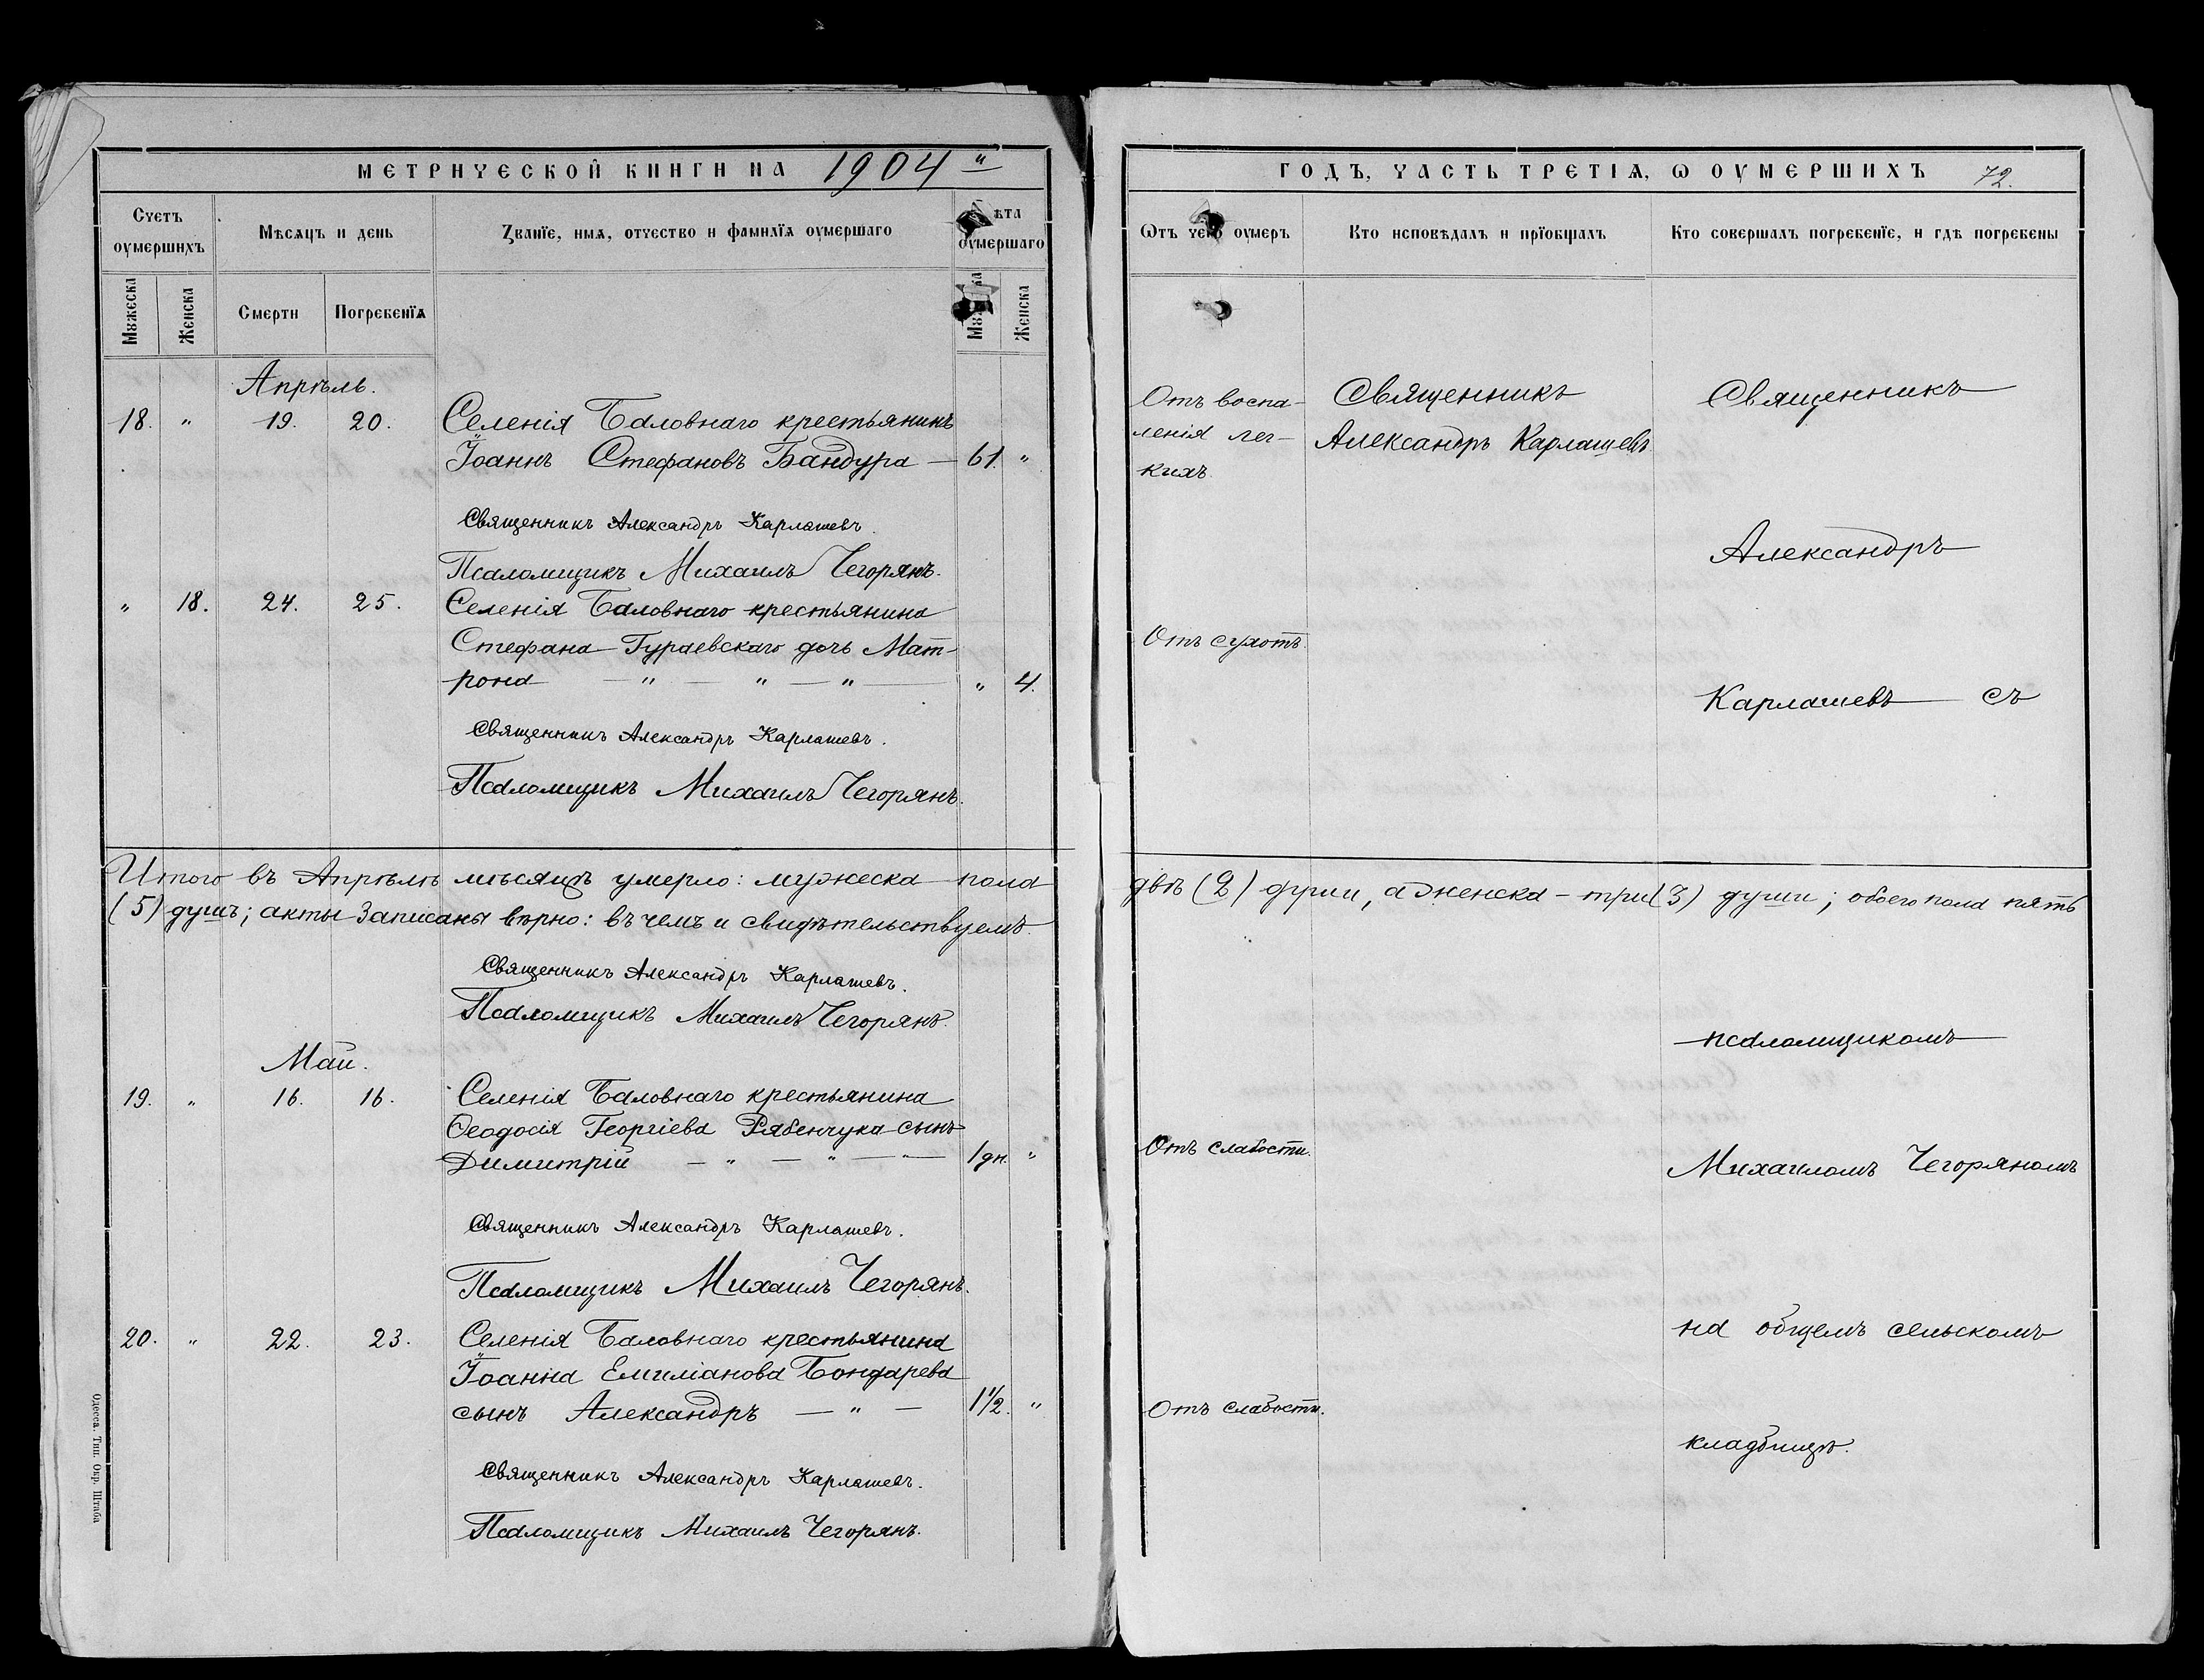 МЕТРИЧЕСКОЙ КНИГИ НА 1904 й
Счетъ оумершихъ
Мѣсяцъ и день
Званїе, имя, отчество и фамилїя оумершаго
Лѣта оумершаго
Мꙋжеска
Женска
Смерти
Погребенїя
Мꙋжеска
Женска
Апрѣль.
18. " 19. 20. Селенія Баловнаго крестьянинъ
Іоаннъ Стефановъ Бандура — 61. "
Священникъ Александръ Карлашевъ.
Псаломщикъ Михаилъ Чегорянъ.
" 18. 24. 25. Селенія Баловнаго крестьянина
Стефана Гураевскаго дочь Мат-
рона — " — " — " — " 4.
Священникъ Александръ Карлашевъ.
Псаломщикъ Михаилъ Чегорянъ.
Итого въ Апрѣлѣ мѣсяцѣ умерло: мужеска пола
(5) душъ; акты записаны вѣрно: въ чемъ и свидѣтельствуемъ.
Священникъ Александръ Карлашевъ.
Псаломщикъ Михаилъ Чегорянъ.
Май.
19. " 16. 16. Селенія Баловнаго крестьянина
Ѳеодосія Георгіева Рябенчука сынъ
Димитрій — " — " — " — 1 дн. "
Священникъ Александръ Карлашевъ.
Псаломщикъ Михаилъ Чегорянъ.
20. " 22. 23. Селенія Баловнаго крестьянина
Іоанна Емиліанова Бондарева
сынъ Александръ — " — 1 1/2. "
Священникъ Александръ Карлашевъ.
Псаломщикъ Михаилъ Чегорянъ.
Одесса. Тип. Окр. Штаба
ГОДЪ, ЧАСТЬ ТРЕТІѦ, Ѡ ОУМЕРШИХЪ 72.
Ѿтъ чегѡ оумеръ
Кто исповѣдалъ и прїобщалъ
Кто совершалъ погребенїе, и гдѣ погребены
Отъ воспа-
ленія лег-
кихъ.
Священникъ
Александръ Карлашевъ
Священникъ
Александръ
Отъ сухотъ.
Карлашевъ съ
двѣ (2) души, а женска - три (3) души; обоего пола пять
псаломщикомъ
Отъ слабости.
Михаиломъ Чегоряномъ
на общемъ сельскомъ
Отъ слабости.
кладбищѣ.